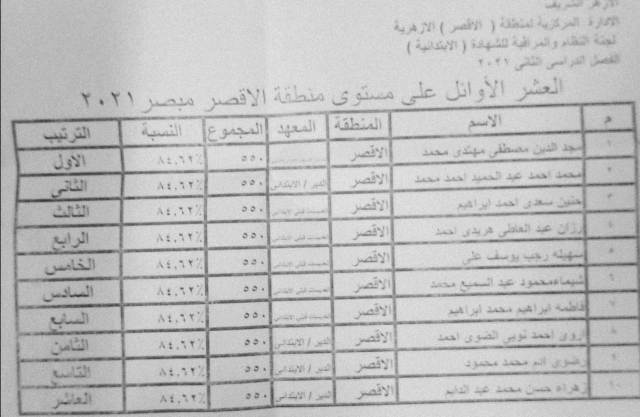 الازهر الشريف
الادارة المركزية لمنطقة ( الاقصر ) الازهرية
لجنة النظام والمراقبة للشهادة ( الابتدائية )
الفصل الدراسى الثانى ٢٠٢١
العشر الأوائل على مستوى منطقة الاقصر مبصر ٢٠٢١
م الاسم المنطقة المعهد المجموع النسبة الترتيب
١ مجد الدين مصطفى مهتدى محمد الاقصر ٥٥٠ ٨٤,٦٢٪ الاول
٢ محمد احمد عبد الحميد احمد محمد الاقصر الدير / الابتدائى ٥٥٠ ٨٤,٦٢٪ الثانى
٣ حنين سعدى احمد ابراهيم الاقصر ٥٥٠ ٨٤,٦٢٪ الثالث
٤ رزان عبد العاطى هريدى احمد الاقصر ٥٥٠ ٨٤,٦٢٪ الرابع
٥ سهيله رجب يوسف على الاقصر ٥٥٠ ٨٤,٦٢٪ الخامس
٦ شيماءمحمود عبد السميع محمد الاقصر ٥٥٠ ٨٤,٦٢٪ السادس
٧ فاطمه ابراهيم محمد ابراهيم الاقصر ٥٥٠ ٨٤,٦٢٪ السابع
٨ اروى احمد نوبى الضوى احمد الاقصر الدير / الابتدائى ٥٥٠ ٨٤,٦٢٪ الثامن
٩ رضوى محمد محمود الاقصر الدير / الابتدائى ٥٥٠ ٨٤,٦٢٪ التاسع
١٠ زهراء حسن محمد عبد الدايم الاقصر الدير / الابتدائى ٥٥٠ ٨٤,٦٢٪ العاشر